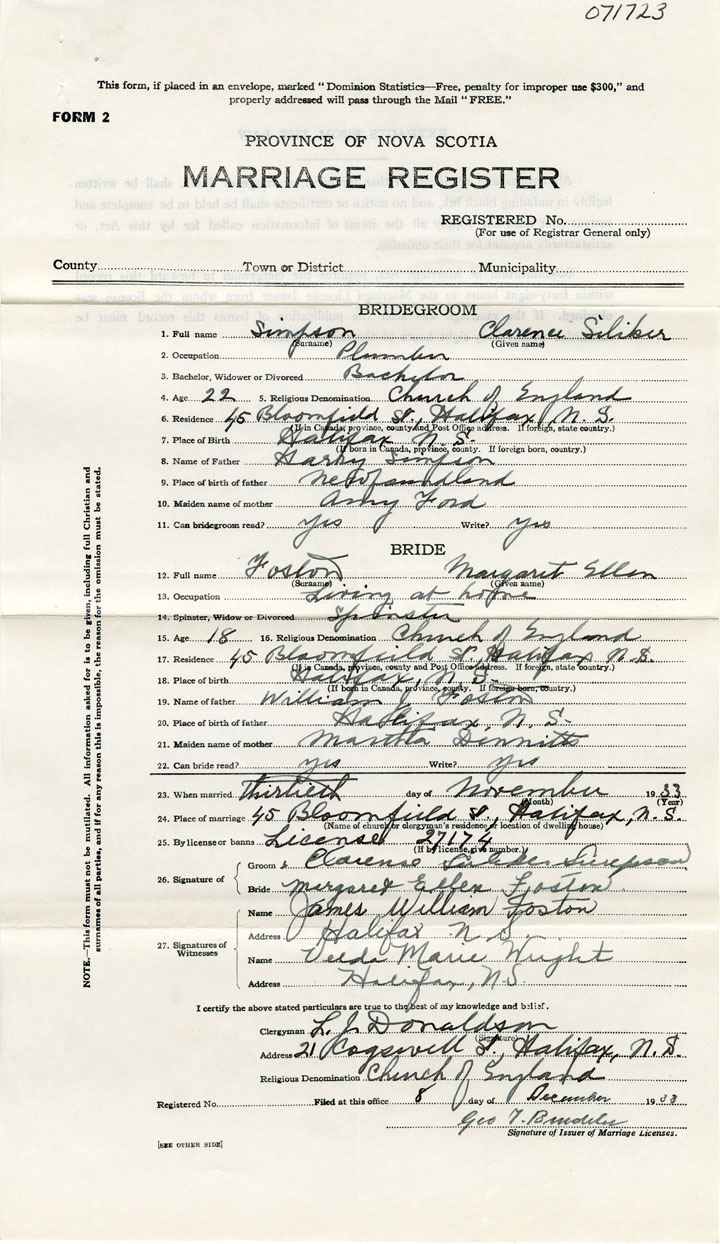 071723
This form, if placed in an envelope, marked "Dominion Statistics—Free, penalty for improper use $300," and
properly addressed will pass through the Mail "FREE."
FORM 2
PROVINCE OF NOVA SCOTIA
MARRIAGE REGISTER
REGISTERED No.
(For use of Registrar General only)
County Town or District Municipality
BRIDEGROOM
1. Full name Simpson Clarence Siliker
(Surname) (Given name)
2. Occupation Plumber
3. Bachelor, Widower or Divorced Bachelor
4. Age 22 5. Religious Denomination Church of England
6. Residence 45 Bloomfield St., Halifax, N.S.
(If in Canada, province, county and Post Office address. If foreign, state country.)
7. Place of Birth Halifax N.S.
(If born in Canada, province, county. If foreign born, country.)
8. Name of Father Harry Simpson
9. Place of birth of father Newfoundland
10. Maiden name of mother Amy Ford
11. Can bridegroom read? yes Write? yes
BRIDE
12. Full name Foston Margaret Ellen
(Surname) (Given name)
13. Occupation Living at home
14. Spinster, Widow or Divorced Spinster
15. Age 18 16. Religious Denomination Church of England
17. Residence 45 Bloomfield St, Halifax N.S.
(If in Canada, province, county and Post Office address. If foreign, state country.)
18. Place of birth Halifax, N.S.
(If born in Canada, province, county. If foreign born, country.)
19. Name of father William J Foston
20. Place of birth of father Halifax, N.S.
21. Maiden name of mother Martha
22. Can bride read? yes Write? yes
23. When married thirtieth day of November 1933
(Month) (Year)
24. Place of marriage 45 Bloomfield St., Halifax, N.S.
(Name of church or clergyman's residence or location of dwelling house)
25. By license or banns License 27174
(If by license, give number.)
26. Signature of
Groom Clarence Siliker Simpson
Bride Margaret Ellen Foston
27. Signatures of Witnesses
Name James William Foston
Address Halifax N S.
Name Marie Wright
Address Halifax, N.S.
I certify the above stated particulars are true to the best of my knowledge and belief.
Clergyman L. J. Donaldson
(Signature)
Address 21 Cogswell St, Halifax, N.S.
Religious Denomination Church of England
Registered No. Filed at this office 8 day of December 1933
Geo T.
Signature of Issuer of Marriage Licenses.
[SEE OTHER SIDE]
NOTE.—This form must not be mutilated. All information asked for is to be given, including full Christian and
surnames of all parties, and if for any reason this is impossible, the reason for the omission must be stated.